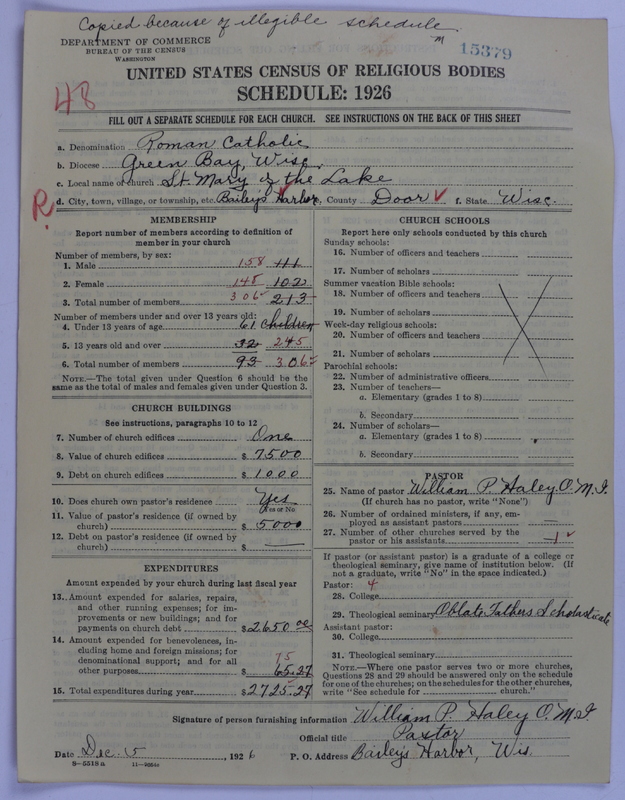 Copied because of illegible schedule
m
15379
DEPARTMENT OF COMMERCE
BUREAU OF THE CENSUS
WASHINGTON
UNITED STATES CENSUS OF RELIGIOUS BODIES
SCHEDULE: 1926
48
FILL OUT A SEPARATE SCHEDULE FOR EACH CHURCH. SEE INSTRUCTIONS ON THE BACK OF THIS SHEET
a. Denomination Roman Catholic
b. Diocese Green Bay, Wisc.
c. Local name of church St. Mary of the Lake
R
d. City, town, village, or township, etc. Baileys Harbor, County Door f. State Wisc.
MEMBERSHIP
Report number of members according to definition of
member in your church
Number of members, by sex:
1. Male 158 111
2. Female 148 102
3. Total number of members 306 213
Number of members under and over 13 years old:
4. Under 13 years of age 61 Children
5. 13 years old and over 32 245
6. Total number of members 93 306
NOTE.—The total given under Question 6 should be the
same as the total of males and females given under Question 3.
CHURCH BUILDINGS
See instructions, paragraphs 10 to 12
7. Number of church edifices One
8. Value of church edifices $ 7500
9. Debt on church edifices $ 1000
10. Does church own pastor's residence Yes
(Yes or No)
11. Value of pastor's residence (if owned by
church) $ 5000
12. Debt on pastor's residence (if owned by
church) $ —
EXPENDITURES
Amount expended by your church during last fiscal year
13. Amount expended for salaries, repairs,
and other running expenses; for im-
provements or new buildings; and for
payments on church debt $ 2650 00
14. Amount expended for benevolences, in-
cluding home and foreign missions; for
denominational support; and for all
75
other purposes $ 65.27
15. Total expenditures during year $ 2725.27
CHURCH SCHOOLS
Report here only schools conducted by this church
Sunday schools:
16. Number of officers and teachers
17. Number of scholars
Summer vacation Bible schools:
18. Number of officers and teachers
19. Number of scholars
Week-day religious schools:
20. Number of officers and teachers
21. Number of scholars
Parochial schools:
22. Number of administrative officers
23. Number of teachers—
a. Elementary (grades 1 to 8)
b. Secondary
24. Number of scholars—
a. Elementary (grades 1 to 8)
b. Secondary
PASTOR
25. Name of pastor William P. Haley O.M.I.
(If church has no pastor, write "None")
26. Number of ordained ministers, if any, em-
ployed as assistant pastors —
27. Number of other churches served by the
pastor or his assistants 1
If pastor (or assistant pastor) is a graduate of a college or
theological seminary, give name of institution below. (If
not a graduate, write "No" in the space indicated.)
Pastor: 4
28. College
29. Theological seminary Oblate Fathers Scholasticate
Assistant pastor:
30. College
31. Theological seminary
NOTE.—Where one pastor serves two or more churches,
Questions 28 and 29 should be answered only on the schedule
for one of the churches; on the schedules for the other churches,
write "See schedule for church."
Signature of person furnishing information William P. Haley O.M.I.
Official title Pastor
Date Dec. 15, 1926 P. O. Address Baileys Harbor, Wis.
8-5518 a 11-9664